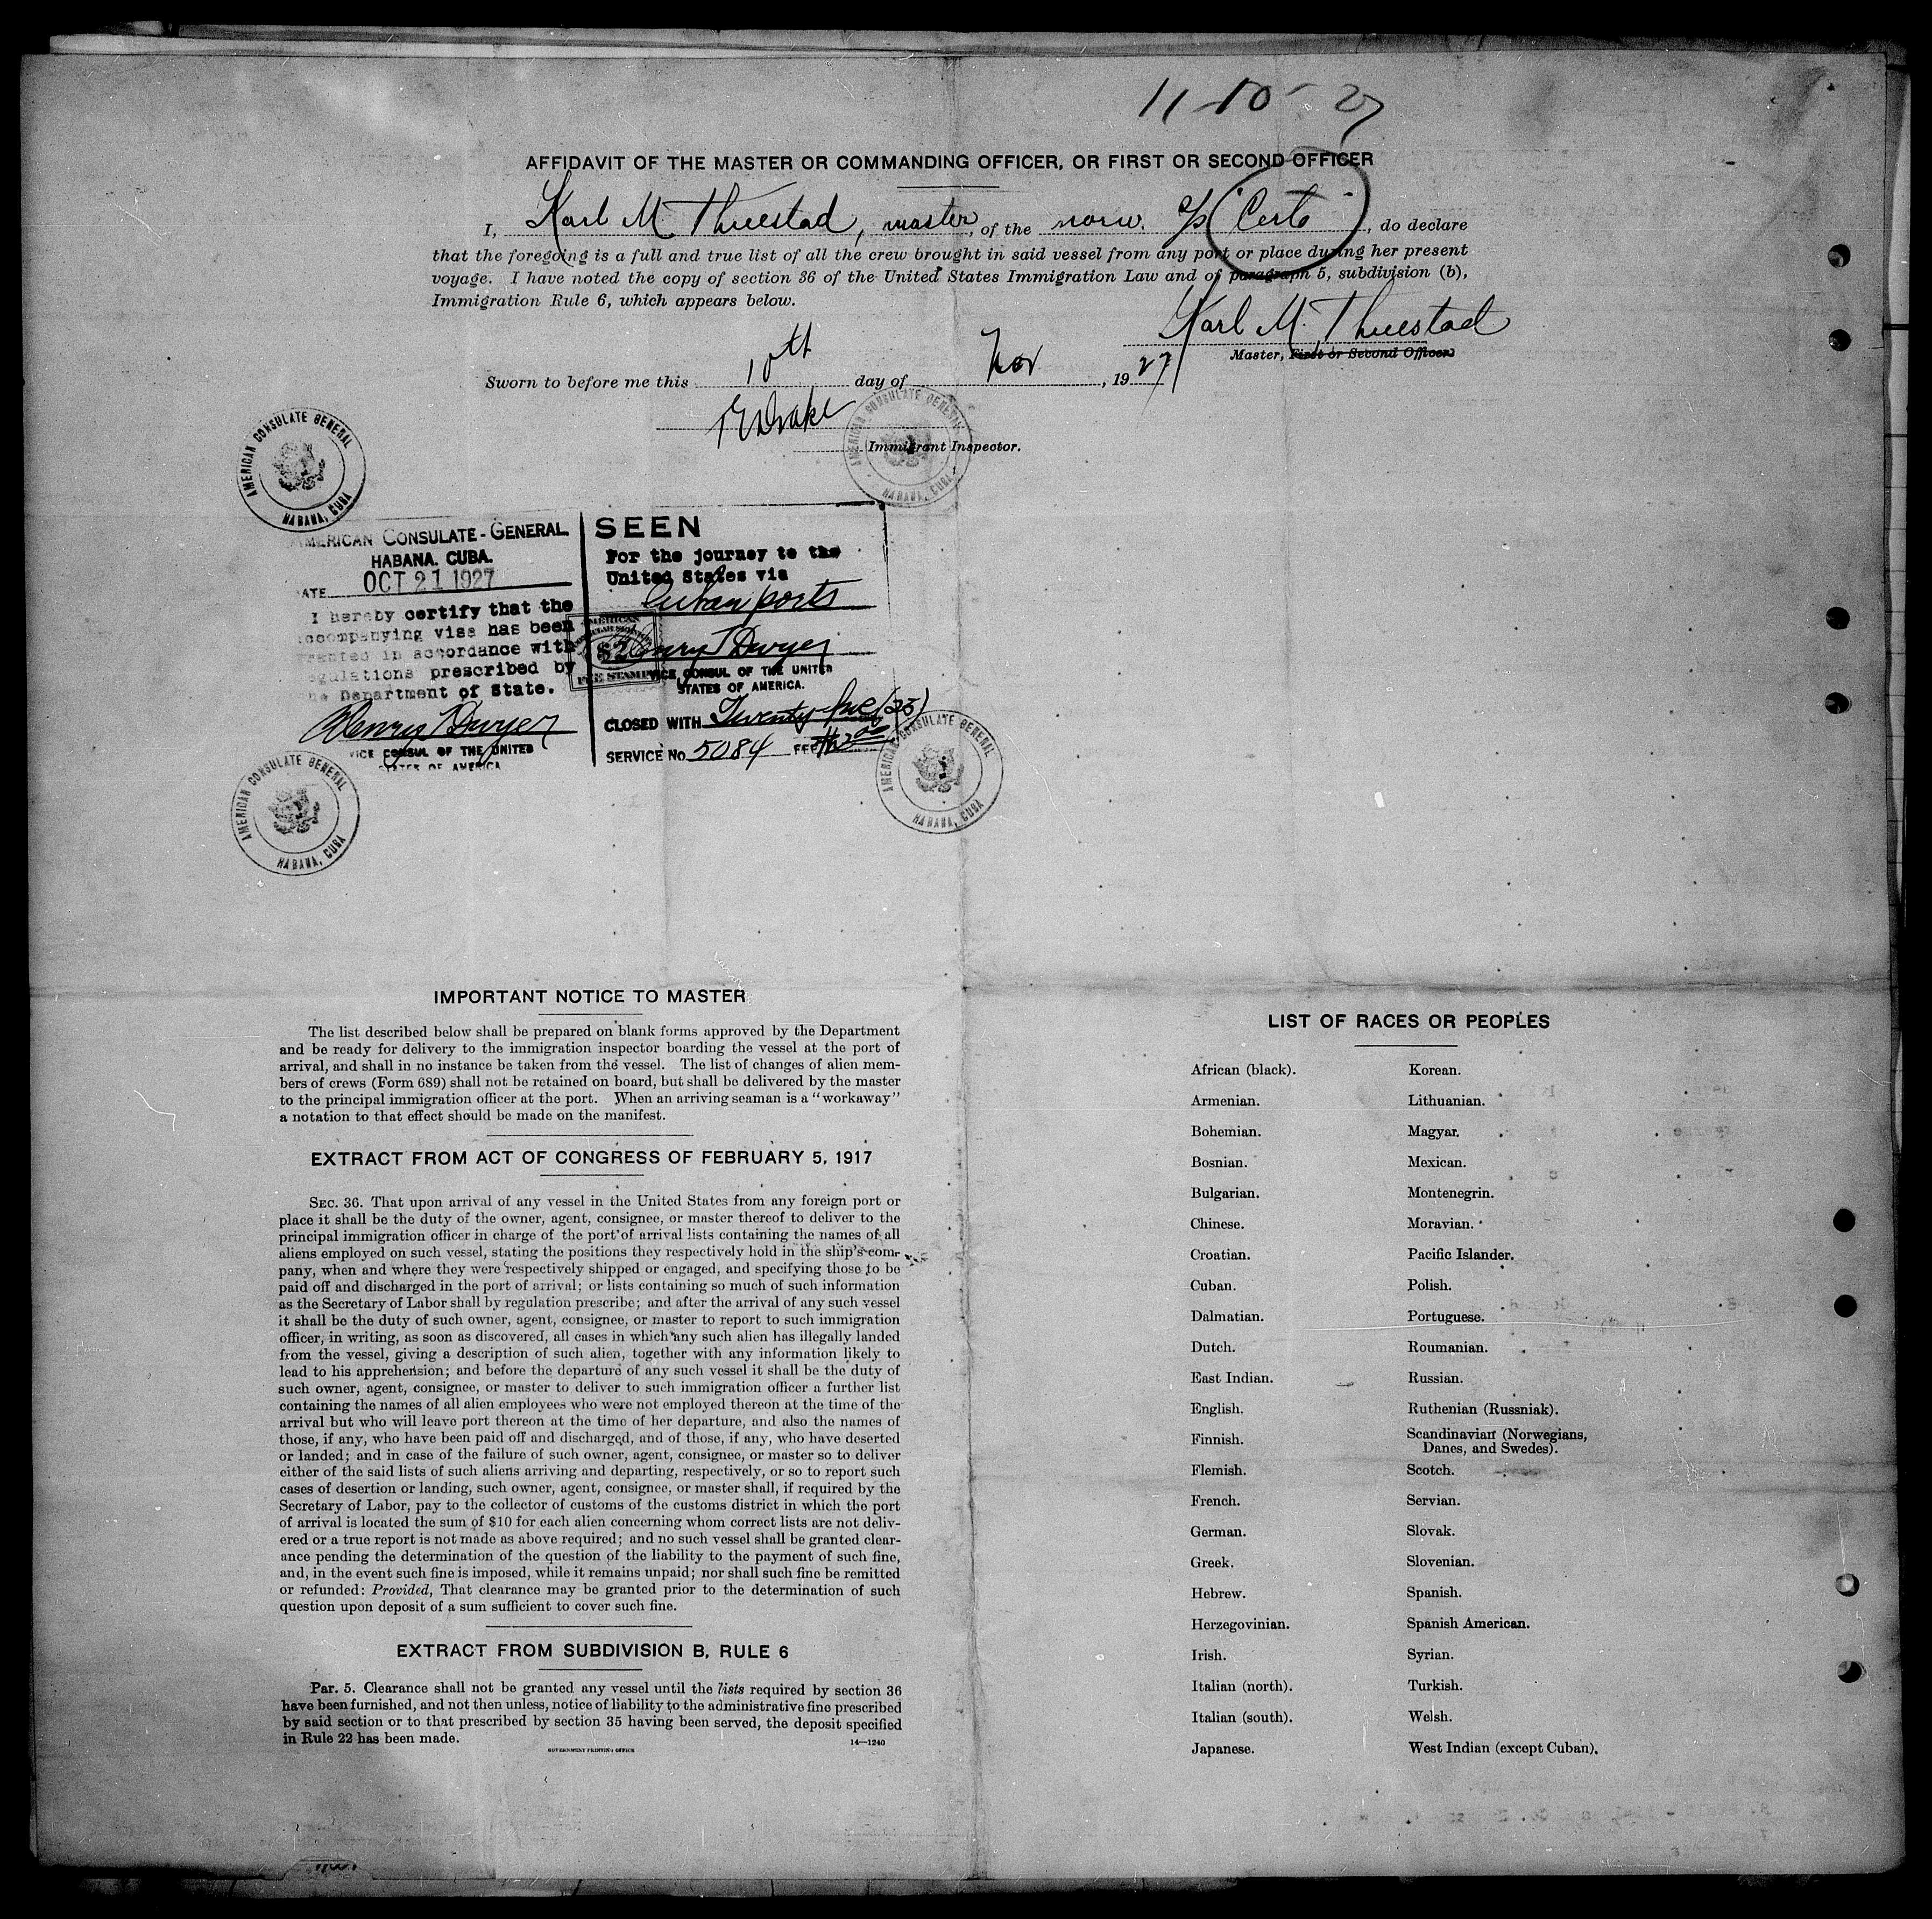 11-10-27
AFFIDAVIT OF THE MASTER OR COMMANDING OFFICER, OR FIRST OR SECOND OFFICER
I, Karl M. Thuestad, master, of the norw. s/s "Certo", do declare
that the foregoing is a full and true list of all the crew brought in said vessel from any port or place during her present
voyage. I have noted the copy of section 36 of the United States Immigration Law and of paragraph 5, subdivision (b),
Immigration Rule 6, which appears below.
Karl M. Thuestad
Master, First or Second Officer.
Sworn to before me this 10th day of Nov, 1927
Drake
Immigrant Inspector.
AMERICAN CONSULATE GENERAL
HABANA, CUBA
AMERICAN CONSULATE GENERAL
HABANA, CUBA
AMERICAN CONSULATE-GENERAL
HABANA. CUBA.
ATE OCT 21 1927
I hereby certify that the
accompanying visa has been
granted in accordance with
regulations prescribed by
the Department of State.
Henry T Dwyer
VICE CONSUL OF THE UNITED
STATES OF AMERICA
SEEN
For the journey to the
United States via
Cuban ports
AMERICAN
$2
FEE STAMP
Henry T Dwyer
VICE CONSUL OF THE UNITED
STATES OF AMERICA.
CLOSED WITH Twenty-five (25)
SERVICE No. 5084 FEE $2.00
AMERICAN CONSULATE GENERAL
HABANA, CUBA
AMERICAN CONSULATE GENERAL
HABANA, CUBA
IMPORTANT NOTICE TO MASTER
The list described below shall be prepared on blank forms approved by the Department
and be ready for delivery to the immigration inspector boarding the vessel at the port of
arrival, and shall in no instance be taken from the vessel. The list of changes of alien mem-
bers of crews (Form 689) shall not be retained on board, but shall be delivered by the master
to the principal immigration officer at the port. When an arriving seaman is a "workaway"
a notation to that effect should be made on the manifest.
EXTRACT FROM ACT OF CONGRESS OF FEBRUARY 5, 1917
SEC. 36. That upon arrival of any vessel in the United States from any foreign port or
place it shall be the duty of the owner, agent, consignee, or master thereof to deliver to the
principal immigration officer in charge of the port of arrival lists containing the names of all
aliens employed on such vessel, stating the positions they respectively hold in the ship's com-
pany, when and where they were respectively shipped or engaged, and specifying those to be
paid off and discharged in the port of arrival; or lists containing so much of such information
as the Secretary of Labor shall by regulation prescribe; and after the arrival of any such vessel
it shall be the duty of such owner, agent, consignee, or master to report to such immigration
officer, in writing, as soon as discovered, all cases in which any such alien has illegally landed
from the vessel, giving a description of such alien, together with any information likely to
lead to his apprehension; and before the departure of any such vessel it shall be the duty of
such owner, agent, consignee, or master to deliver to such immigration officer a further list
containing the names of all alien employees who were not employed thereon at the time of the
arrival but who will leave port thereon at the time of her departure, and also the names of
those, if any, who have been paid off and discharged, and of those, if any, who have deserted
or landed; and in case of the failure of such owner, agent, consignee, or master so to deliver
either of the said lists of such aliens arriving and departing, respectively, or so to report such
cases of desertion or landing, such owner, agent, consignee, or master shall, if required by the
Secretary of Labor, pay to the collector of customs of the customs district in which the port
of arrival is located the sum of $10 for each alien concerning whom correct lists are not deliv-
ered or a true report is not made as above required; and no such vessel shall be granted clear-
ance pending the determination of the question of the liability to the payment of such fine,
and, in the event such fine is imposed, while it remains unpaid; nor shall such fine be remitted
or refunded: Provided, That clearance may be granted prior to the determination of such
question upon deposit of a sum sufficient to cover such fine.
EXTRACT FROM SUBDIVISION B, RULE 6
Par. 5. Clearance shall not be granted any vessel until the lists required by section 36
have been furnished, and not then unless, notice of liability to the administrative fine prescribed
by said section or to that prescribed by section 35 having been served, the deposit specified
in Rule 22 has been made.
GOVERNMENT PRINTING OFFICE
14—1240
LIST OF RACES OR PEOPLES
African (black).
Armenian.
Bohemian.
Bosnian.
Bulgarian.
Chinese.
Croatian.
Cuban.
Dalmatian.
Dutch.
East Indian.
English.
Finnish.
Flemish.
French.
German.
Greek.
Hebrew.
Herzegovinian.
Irish.
Italian (north).
Italian (south).
Japanese.
Korean.
Lithuanian.
Magyar.
Mexican.
Montenegrin.
Moravian.
Pacific Islander.
Polish.
Portuguese.
Roumanian.
Russian.
Ruthenian (Russniak).
Scandinavian (Norwegians,
Danes, and Swedes).
Scotch.
Servian.
Slovak.
Slovenian.
Spanish.
Spanish American.
Syrian.
Turkish.
Welsh.
West Indian (except Cuban).